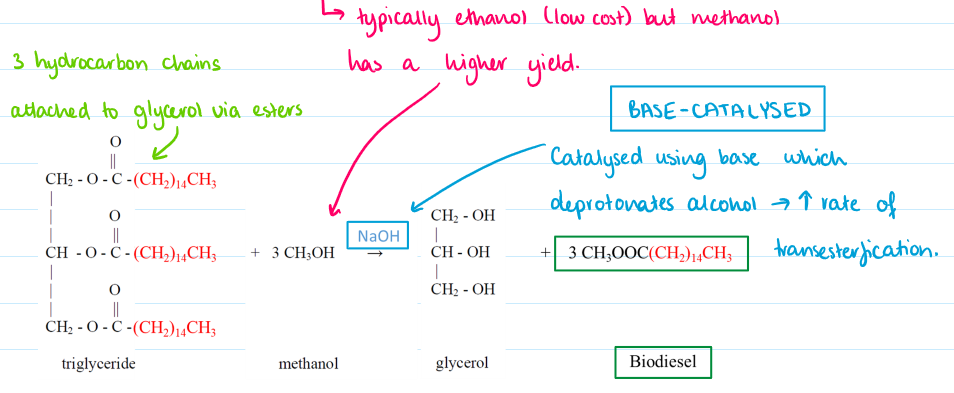 ↳ typically ethanol (low cost) but methanol
has a higher yield.
3 hydrocarbon chains
attached to glycerol via esters
BASE-CATALYSED
Catalysed using base which
deprotonates alcohol → ↑ rate of
transesterfication.
O
||
CH₂ - O - C -(CH₂)₁₄CH₃
|
O
||
CH - O - C -(CH₂)₁₄CH₃ + 3 CH₃OH NaOH →
|
O
||
CH₂ - O - C -(CH₂)₁₄CH₃
CH₂ - OH
|
CH - OH + 3 CH₃OOC(CH₂)₁₄CH₃
|
CH₂ - OH
triglyceride methanol glycerol Biodiesel